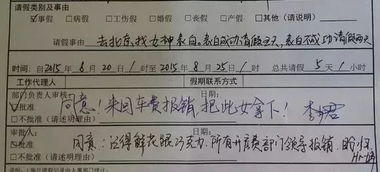 请假类别及事由
☑事假 □病假 □工伤假 □婚假 □丧假 □产假 □其他(请说明)
请假事由 去北京,找女神表白,表白成功请假五天,表白不成功请假两天
时间:自2015年8月20日1时至2015年8月25日1时 总共请假5天1小时
工作代理人 假期联系方式
部门负责人审核: 日期:
☑批准 同意!来回车费报销,把此女拿下!
□不批准(请述明理由)
审批人: 日期:
☑批准 同意:记得鲜花跟巧克力,所有开费部门领导报销
□不批准(请述明理由)